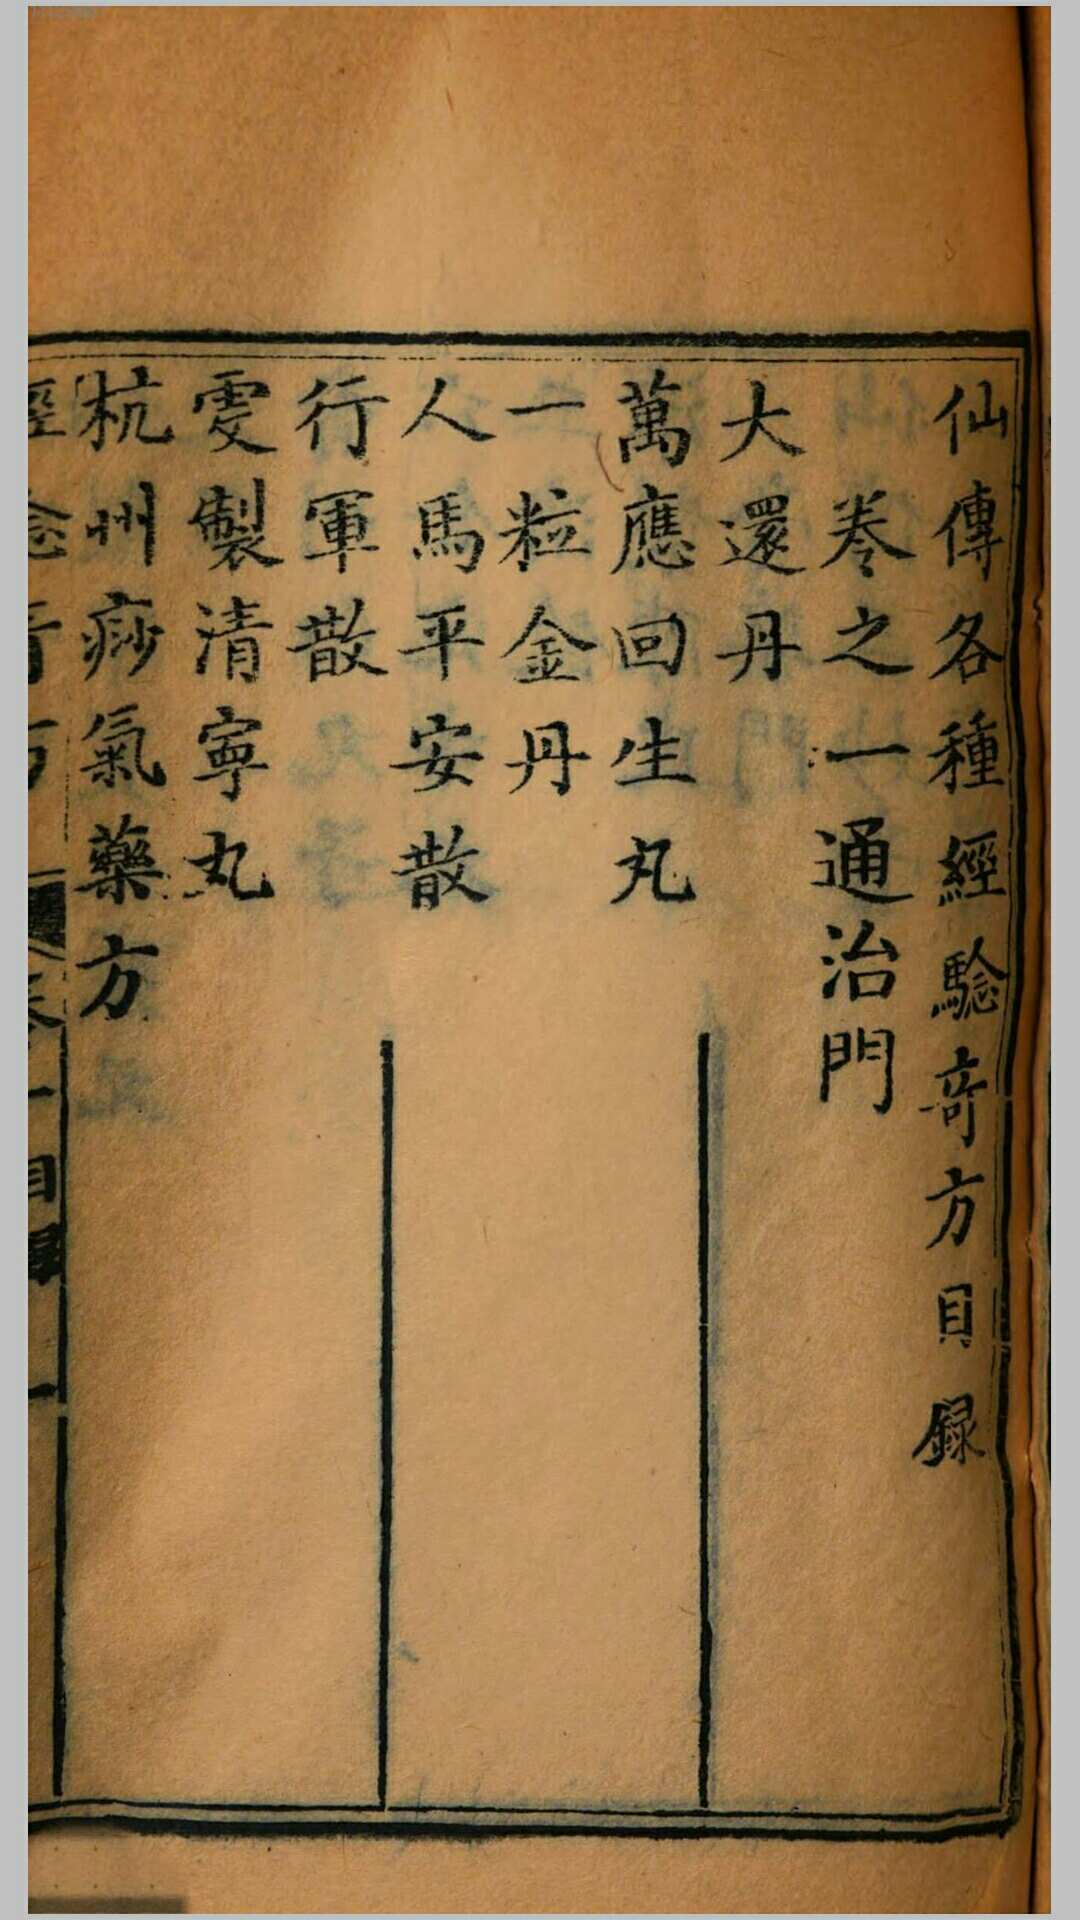 仙傳各種經騐竒方目録
卷之一通治門
大還丹
萬應回生丸
一粒金丹
人馬平安散
行軍散
雯製清寧丸
杭州痧氣藥方
卷一目録 一